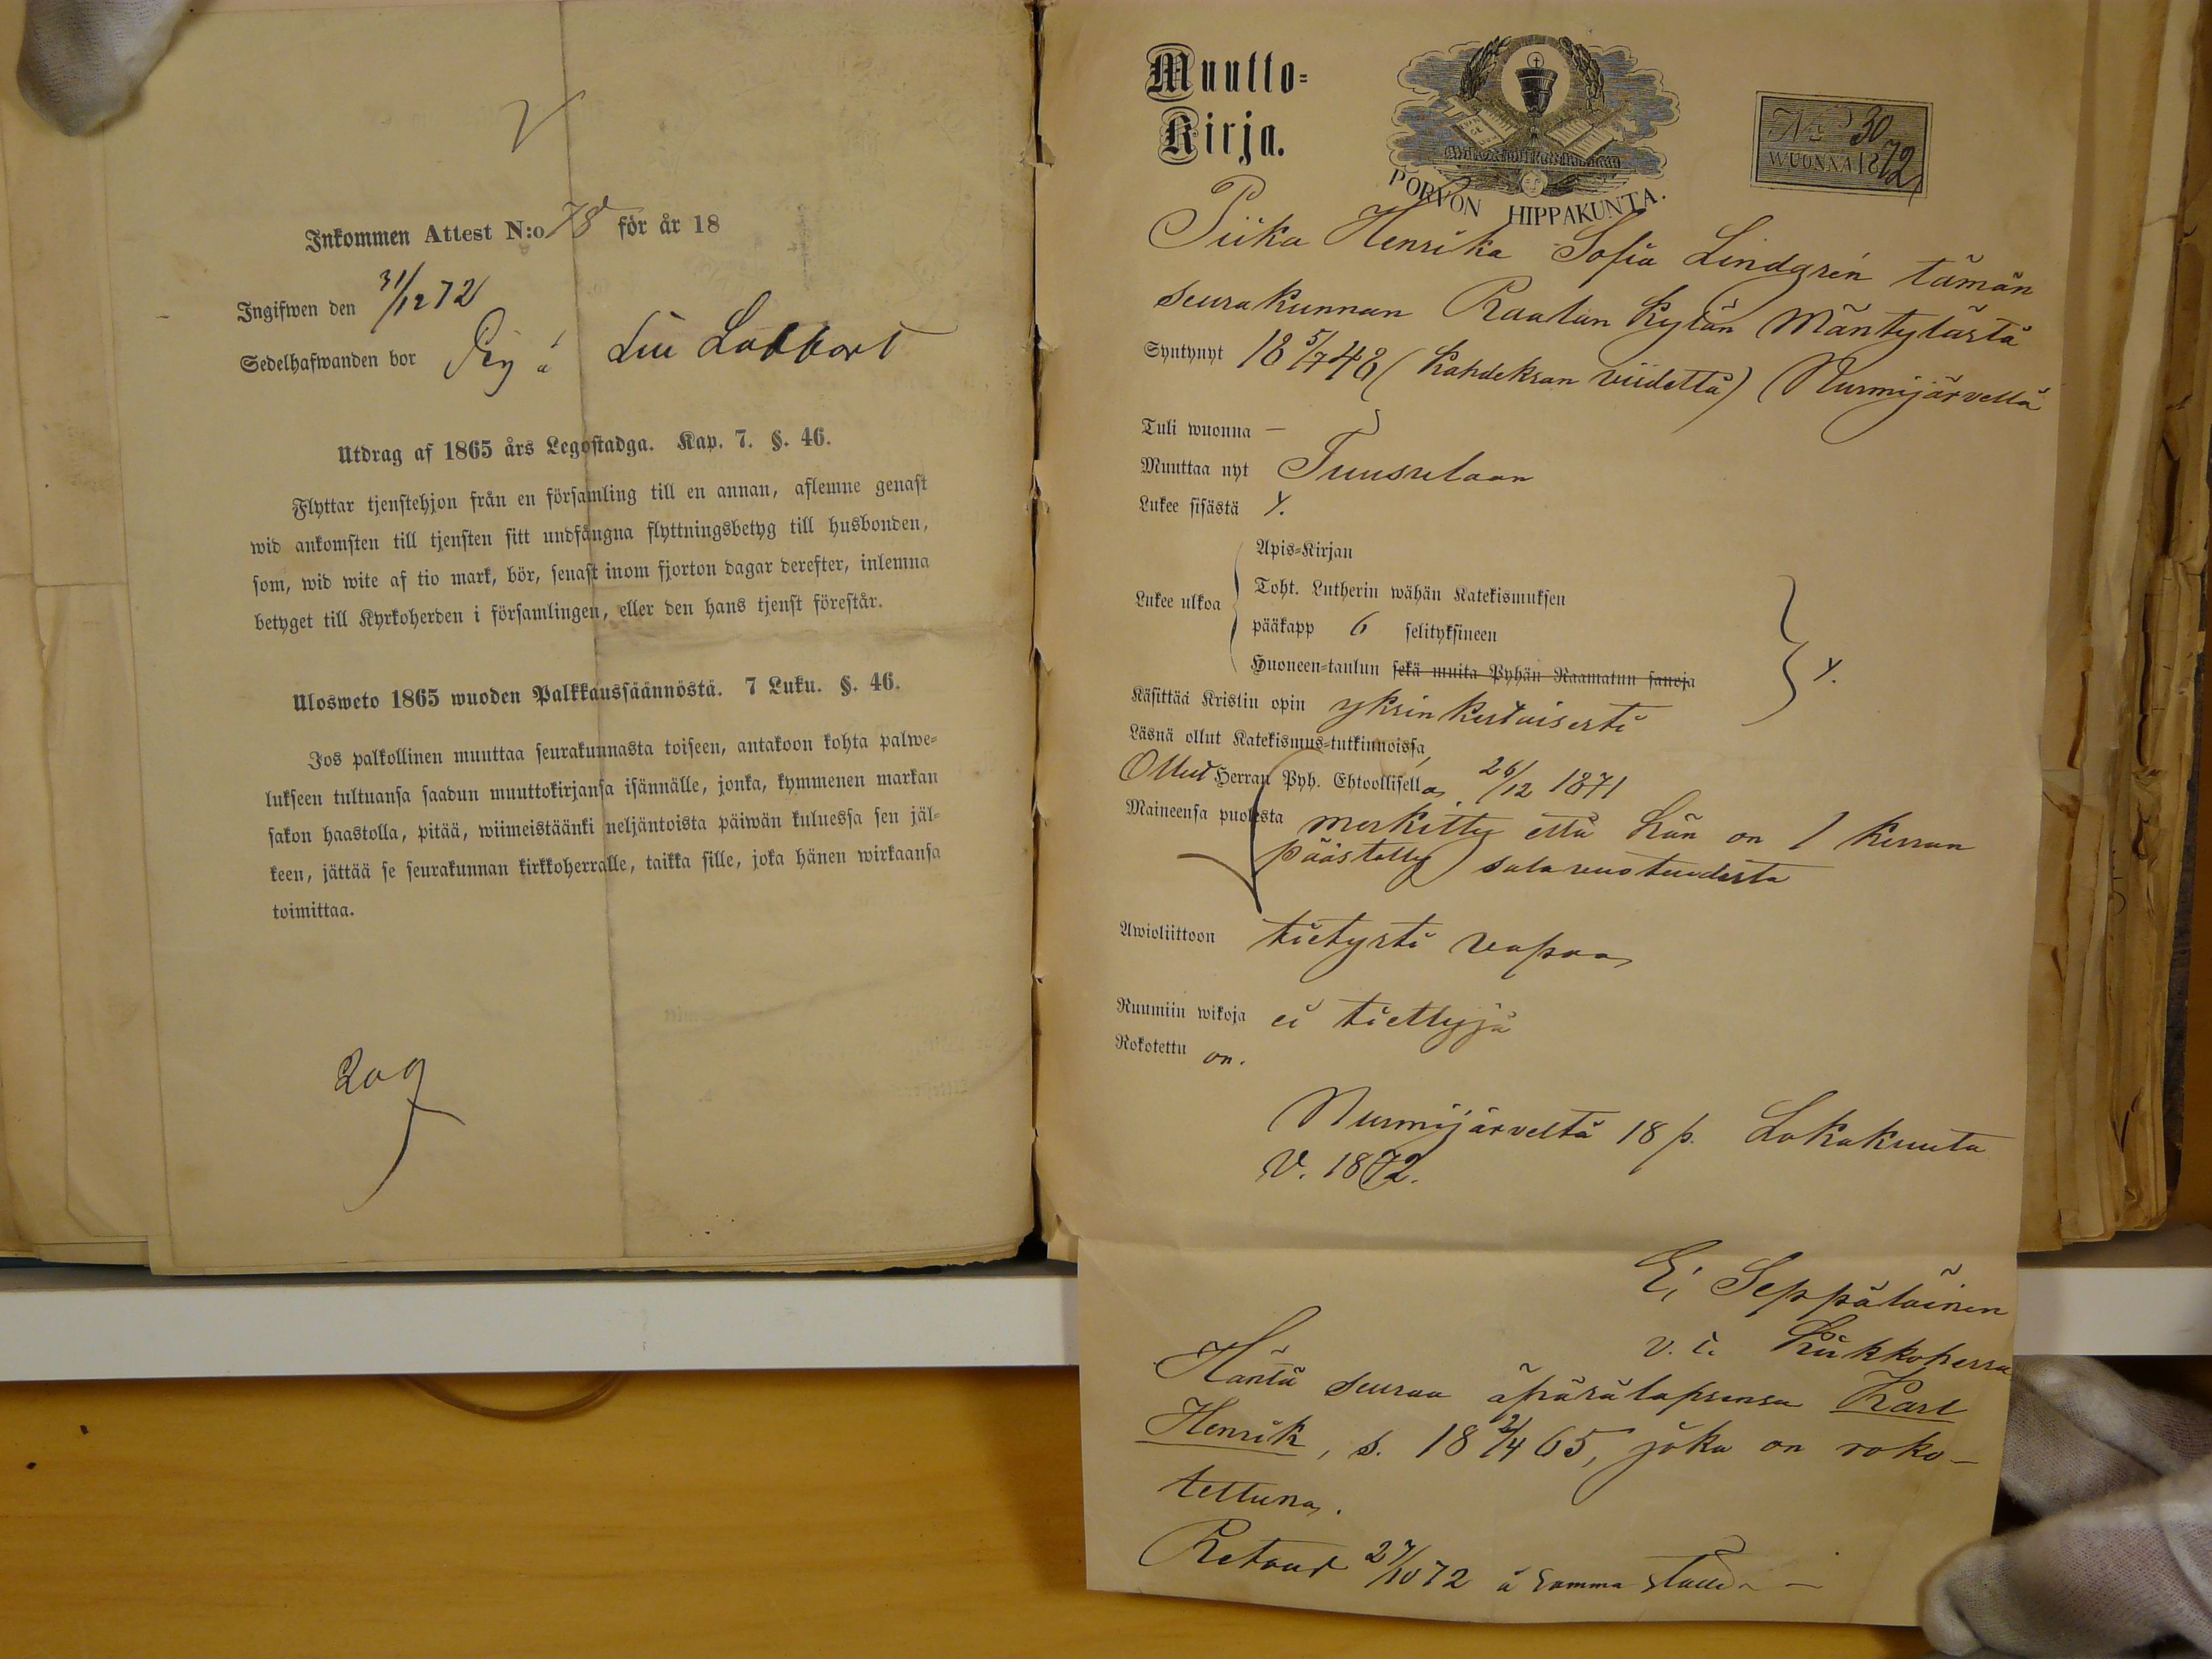 Inkommen Attest N:o 78 för år 18
Ingifwen den 31/12 72
Sedelhafwanden bor
Utdrag af 1865 års Legostadga. Kap. 7. §. 46.
Flyttar tjenstehjon från en församling till en annan, aflemne genast
wid ankomsten till tjensten sitt undfångna flyttningsbetyg till husbonden,
som, wid wite af tio mark, bör, senast inom fjorton dagar derefter, inlemna
betyget till Kyrkoherden i församlingen, eller den hans tjenst förestår.
Ulosweto 1865 wuoden Palkkaussäännöstä. 7 Luku. §. 46.
Jos palkollinen muuttaa seurakunnasta toiseen, antakoon kohta palwe-
lukseen tultuansa saadun muuttokirjansa isännälle, jonka, kymmenen markan
sakon haastolla, pitää, wiimeistäänki neljäntoista päiwän kuluessa sen jäl-
keen, jättää se seurakunnan kirkkoherralle, taikka sille, joka hänen wirkaansa
toimittaa.
209
Muutto-
Kirja.
PORVON HIPPAKUNTA.
No 30
WUONNA 1872
Piika Henrika Sofia Lindgrén tämän
seurakunnan Raalan kylän Mäntylästä
Syntynyt 18 5/7 48 (kahdeksan viidettä) Nurmijärvellä
Tuli wuonna —
Muuttaa nyt Tuusulaan
Lukee sisästä y.
Lukee ulkoa
Apis-Kirjan
Toht. Lutherin wähän Katekismuksen
pääkapp 6 selityksineen
Huoneen-taulun sekä muita Pyhän Raamatun sanoja
y.
Käsittää Kristin opin yksinkertaisesti
Läsnä ollut Katekismus-tutkinnoissa,
Ollut Herran Pyh. Ehtoollisella 26/12 1871
Maineensa puolesta merkitty että hän on 1 kerran
päästetty salavuoteudesta
Awioliittoon tietysti vapaa
Ruumiin wikoja ei tiettyjä
Rokotettu on.
Nurmijärveltä 18 p. Lokakuuta
V. 1872.
E, Seppäläinen
v. i. Kirkkoherra
Häntä seuraa äpärälapsensa Karl
Henrik, s. 18 2/4 65, joka on roko-
tettuna.
Retour 27/10 72 à samma ställe —